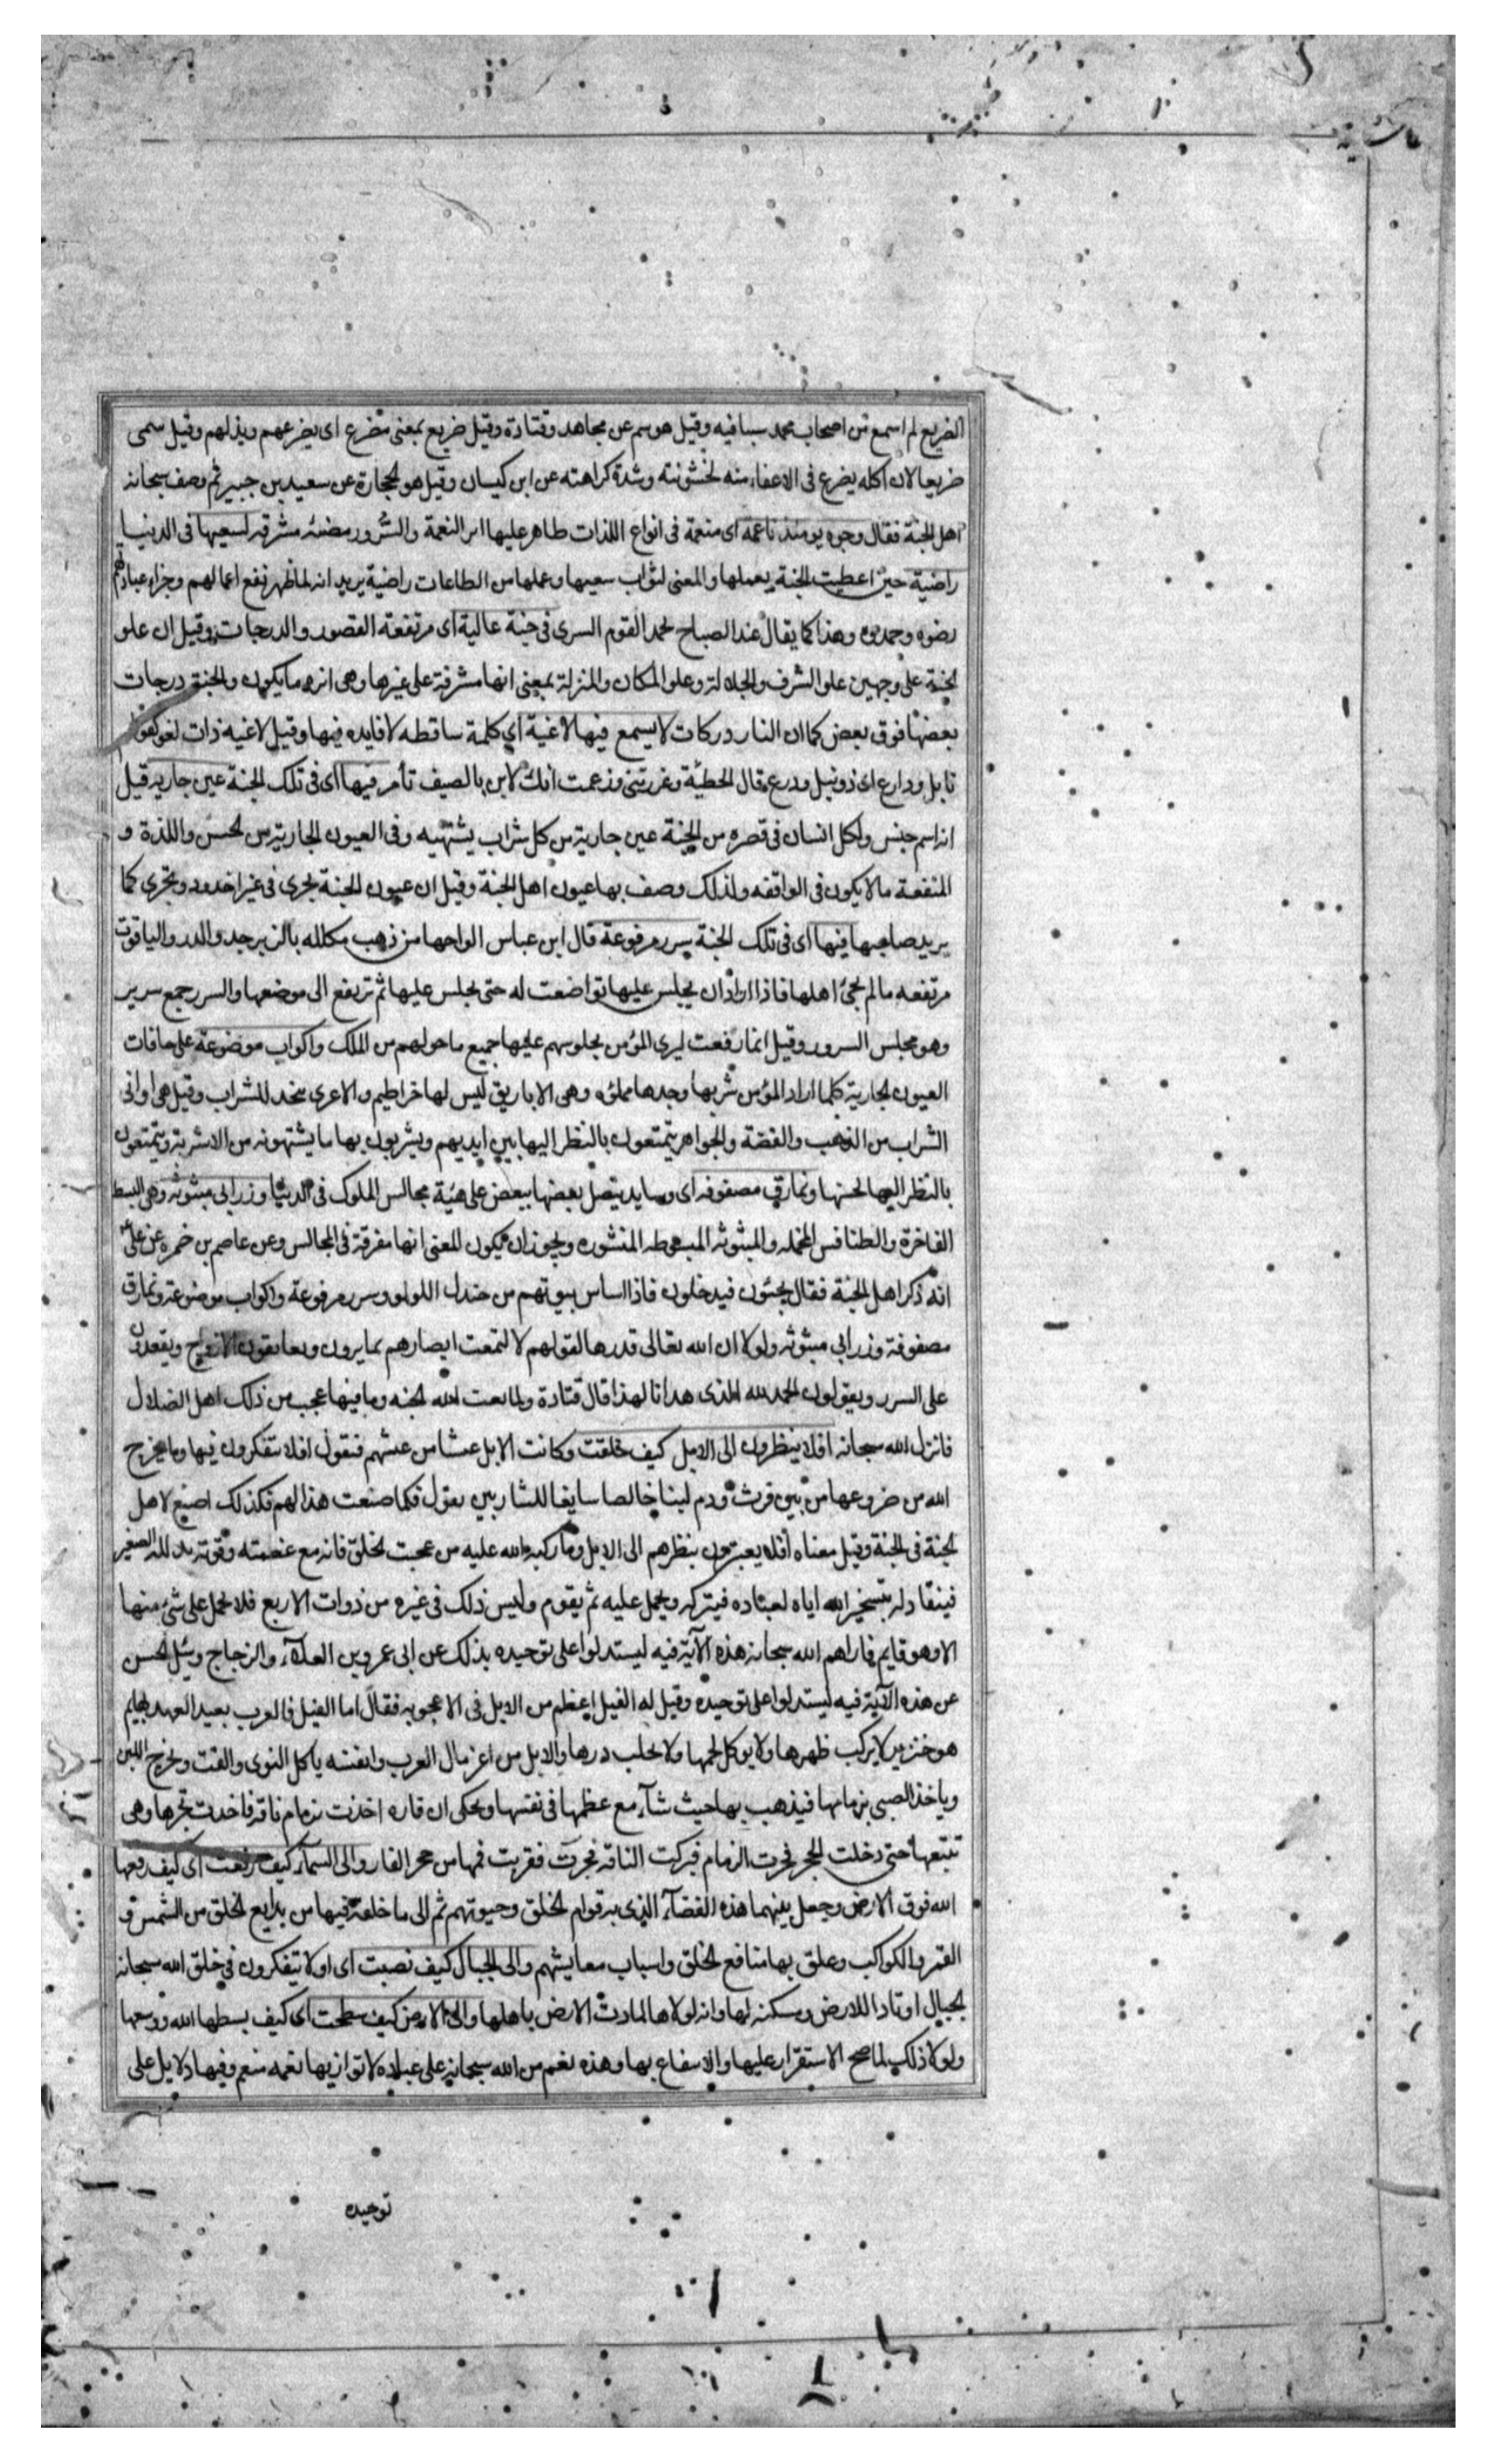 الضريع لم اسمع من اصحاب محمد سبيا فيه وقيل هو سم عن مجاهد وقتادة وقيل ضريع بمعنى مضرع اى يضرعهم ويذلهم وقيل سمى
ضريعا لان اكله يضرع فى الاعفاء منه لخشونته وشدة كراهته عن ابن كيسان وقيل هو الحجارة عن سعيد بن جبير ثم وصف سبحانه
اهل الجنة فقال وجوه يومئذ ناعمه اى منعمة فى انواع اللذات ظاهر عليها اثر النعمة والسرور مضئه مشرقه لسعيها فى الدنيا
راضية حين اعطيت الجنة بعملها والمعنى لثواب سعيها وعملها من الطاعات راضية يريد انه لما ظهر نفع اعمالهم وجزاء عبادتهم
رضوه وحمدوه وهذا كما يقال عند الصباح يحمد القوم السرى فى جنة عالية اى مرتفعة القصور والدرجات وقيل ان علو
الجنة على وجهين علو الشرف والجلالة وعلو المكان والمنزلة بمعنى انها مشرفة على غيرها وهى انزه ما يكون والجنة درجات
بعضها فوق بعض كما ان النار دركات لا يسمع فيها لاغية اى كلمة ساقطه لا فايده فيها وقيل لاغيه ذات لغو كقولهم
نابل ودارع اى ذو نبل ودرع قال الحطيئة وغررتنى وزعمت انك لابن بالصيف تأمر فيها اى فى تلك الجنة عين جاريه قيل
انه اسم جنس ولكل انسان فى قصره من الجنة عين جارية من كل شراب يشتهيه وفى العيون الجارية من الحسن واللذة و
المنفعة ما لا يكون فى الواقفه ولذلك وصف بها عيون اهل الجنة وقيل ان عيون الجنة تجرى فى غير اخدود وتجرى كما
يريد صاحبها فيها اى فى تلك الجنة سرر مرفوعة قال ابن عباس الواحها من ذهب مكلله بالزبرجد والدر والياقوت
مرتفعه ما لم يجئ اهلها فاذا اراد ان يجلس عليها تواضعت له حتى يجلس عليها ثم ترتفع الى موضعها والسرر جمع سرير
وهو مجلس السرور وقيل انما رفعت ليرى المؤمن بجلوسهم عليها جميع ما حولهم من الملك واكواب موضوعة على حافات
العيون الجارية كلما اراد المؤمن شربها وجدها مملؤه وهى الاباريق ليس لها خراطيم ولا عرى تتخذ للشراب وقيل هى اوانى
الشراب من الذهب والفضة والجواهر يتمتعون بالنظر اليها بين ايديهم ويشربون بها ما يشتهونه من الاشربة ويتمتعون
بالنظر اليها لحسنها ونمارق مصفوفه اى وسايد يتصل بعضها ببعض على هيئة مجالس الملوك فى الدنيا وزرابى مبثوثه وهى البسط
الفاخرة والطنافس المخمله والمبثوثه المبسوطه المنشوره ويجوز ان يكون المعنى انها مفرقة فى المجالس وعن عاصم بن ضمره عن على
انه ذكر اهل الجنة فقال يجئون فيدخلون فاذا اساس بيوتهم من جندل اللولو وسرر مرفوعة واكواب موضوعة ونمارق
مصفوفة وزرابى مبثوثه ولولا ان الله تعالى قدرها لهم لالتمعت ابصارهم بما يرون ويعانقون الازواج ويقعدون
على السرر ويقولون الحمد لله الذى هدانا لهذا قال قتادة ولما نعت الله الجنه وما فيها عجب من ذلك اهل الضلال
فانزل الله سبحانه افلا ينظرون الى الابل كيف خلقت وكانت الابل عيشا من عيشهم فنقول افلا تتفكرون فيها وما يخرج
الله من ضروعها من بين فرث ودم لبنا خالصا سايغا للشاربين يقول فكما صنعت هذا لهم فكذلك اصنع لاهل
الجنة فى الجنة وقيل معناه افلا يعتبرون بنظرهم الى الابل وما ركبه الله عليه من عجيب الخلق فانه مع عظمته وقوته يذلله الصغير
فينقاد له بتسخير الله اياه لعباده فيتركه ويحمل عليه ثم يقوم وليس ذلك فى غيره من ذوات الاربع فلا يحمل على شئ منها
الا وهو قايم فاراهم الله سبحانه هذه الآية فيه ليستدلوا على توحيده بذلك عن ابى عمرو بن العلآء والزجاج وسئل الحسن
عن هذه الآية فيه ليستدلوا على توحيده وقيل له الفيل اعظم من الابل فى الاعجوبه فقال اما الفيل فالعرب بعيد العهد بها ثم
هو خنزير لا يركب ظهرها ولا يوكل لحمها ولا يحلب درها والابل من اعز مال العرب وانفسه ياكل النوى والقت ويخرج اللبن
وياخذ الصبى بزمامها فيذهب بها حيث شآء مع عظمها فى نفسها ويحكى ان فاره اخذت بزمام ناقة فاخذت تجرها وهى
تتبعها حتى دخلت الجحر فجرت الزمام فبركت الناقه فجرت فقربت فمها من جحر الفار والى السمآء كيف رفعت اى كيف رفعها
الله فوق الارض وجعل بينهما هذه الفضآء الذى به قوام الخلق وحيوتهم ثم الى ما خلقه فيها من بدايع الخلق من الشمس و
القمر والكواكب وعلق بها منافع الخلق واسباب معايشهم والى الجبال كيف نصبت اى اولا يتفكرون فى خلق الله سبحانه
الجبال اوتادا للارض ومسكنه لها وانه لولاها لمادت الارض باهلها والى الارض كيف سطحت اى كيف بسطها الله ووسعها
ولولا ذلك لما صح الاستقرار عليها والانتفاع بها وهذه نعم من الله سبحانه على عباده لا توازيها نعمه منعم وفيها دلايل على
توحيده